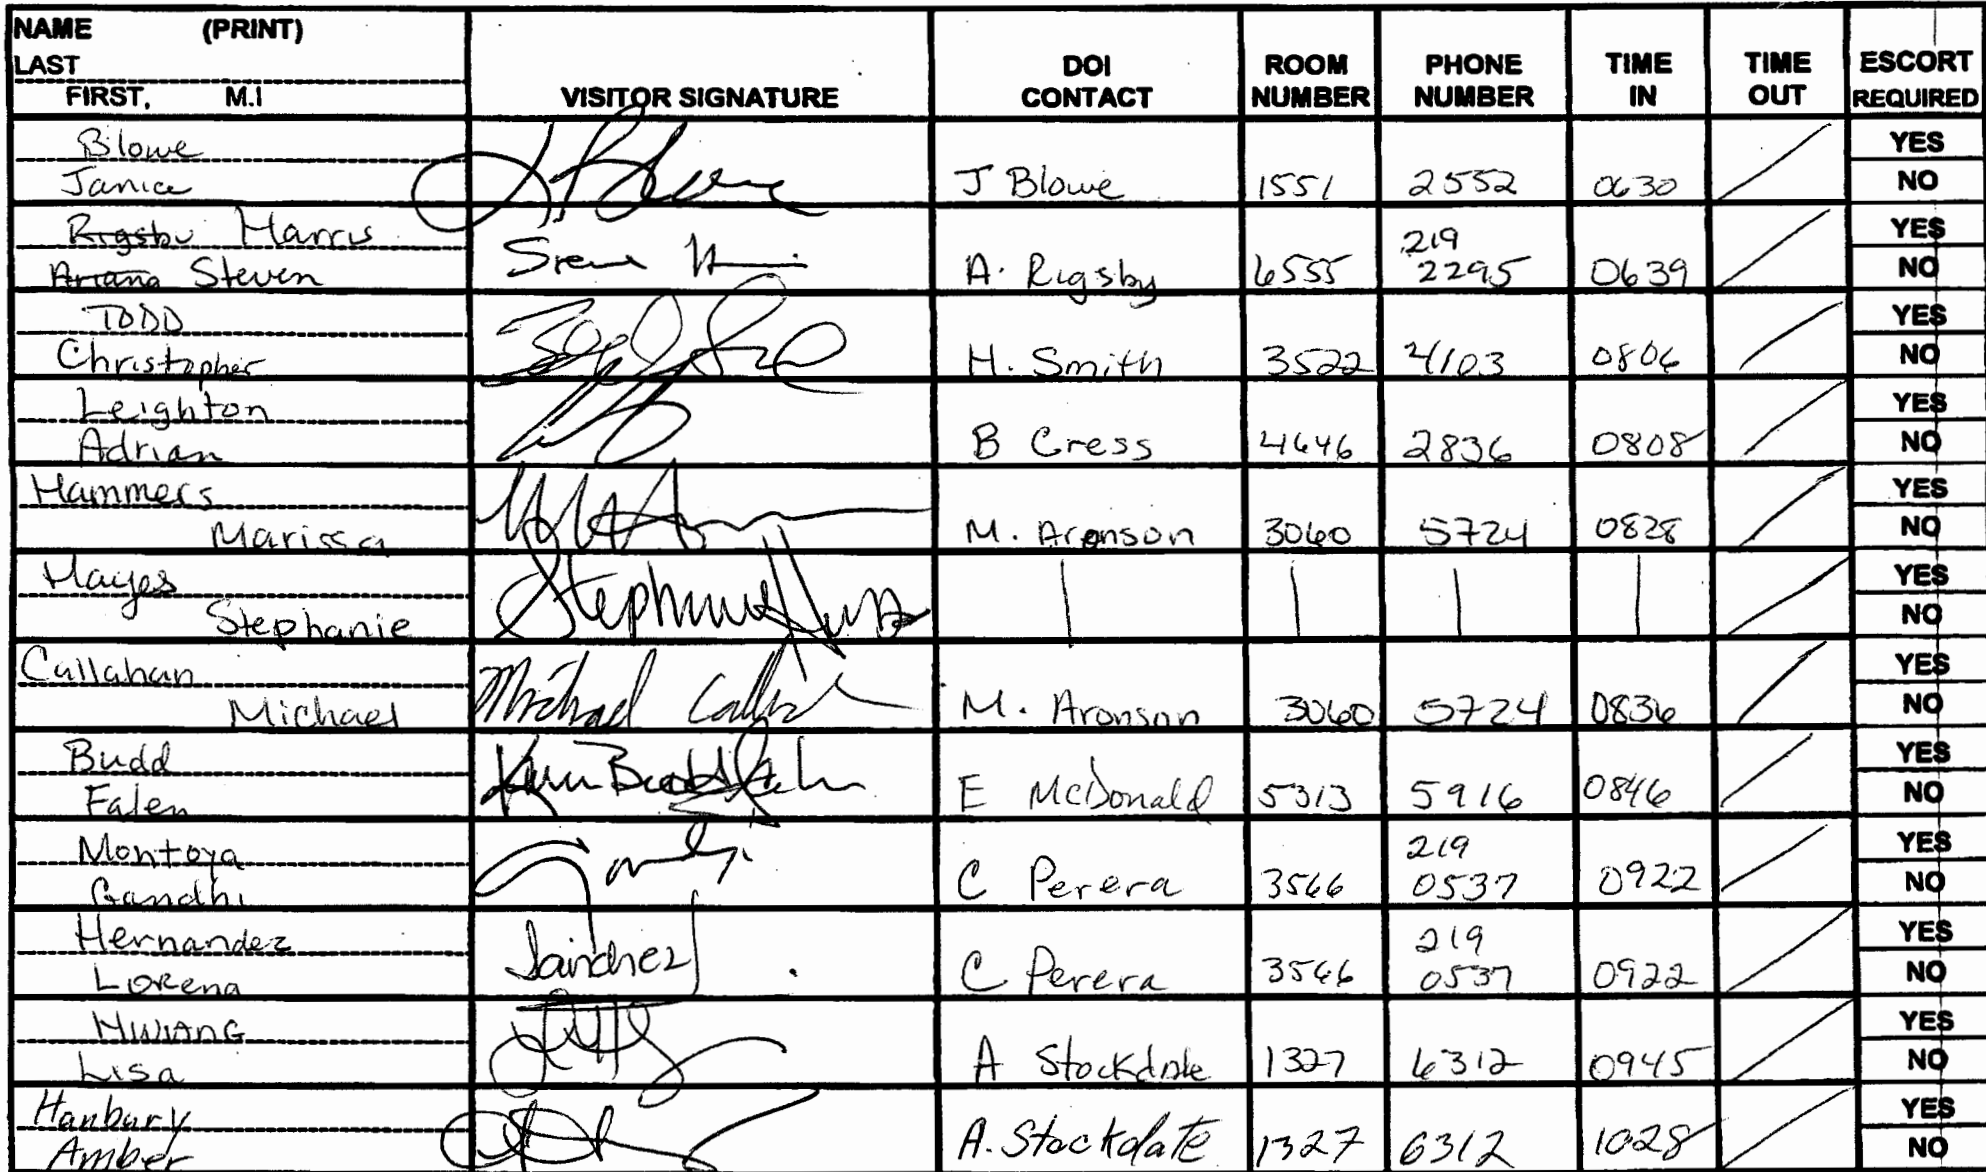 NAME (PRINT)
LAST
FIRST, M.I
VISITOR SIGNATURE
DOI CONTACT
ROOM NUMBER
PHONE NUMBER
TIME IN
TIME OUT
ESCORT REQUIRED
Blowe
Janice
J Blowe 1551 2552 0630
YES
NO
Rigsby Harris
Ariana Steven
Steve
A. Rigsby 6555 219 2295 0639
YES
NO
TODD
Christopher
H. Smith 3522 4103 0806
YES
NO
Leighton
Adrian
B Cress 4646 2836 0808
YES
NO
Hammers
Marissa
M. Aronson 3060 5724 0828
YES
NO
Hayes
Stephanie
Stephanie
YES
NO
Callahan
Michael
Michael
M. Aronson 3060 5724 0836
YES
NO
Budd
Falen
Karen Budd Falen
E McDonald 5313 5916 0846
YES
NO
Montoya
Gandhi
C Perera 3566 219 0537 0922
YES
NO
Hernandez
Lorena
C Perera 3566 219 0537 0922
YES
NO
HWANG
Lisa
A Stockdale 1327 6312 0945
YES
NO
Hanbury
Amber
A. Stockdate 1327 6312 1028
YES
NO